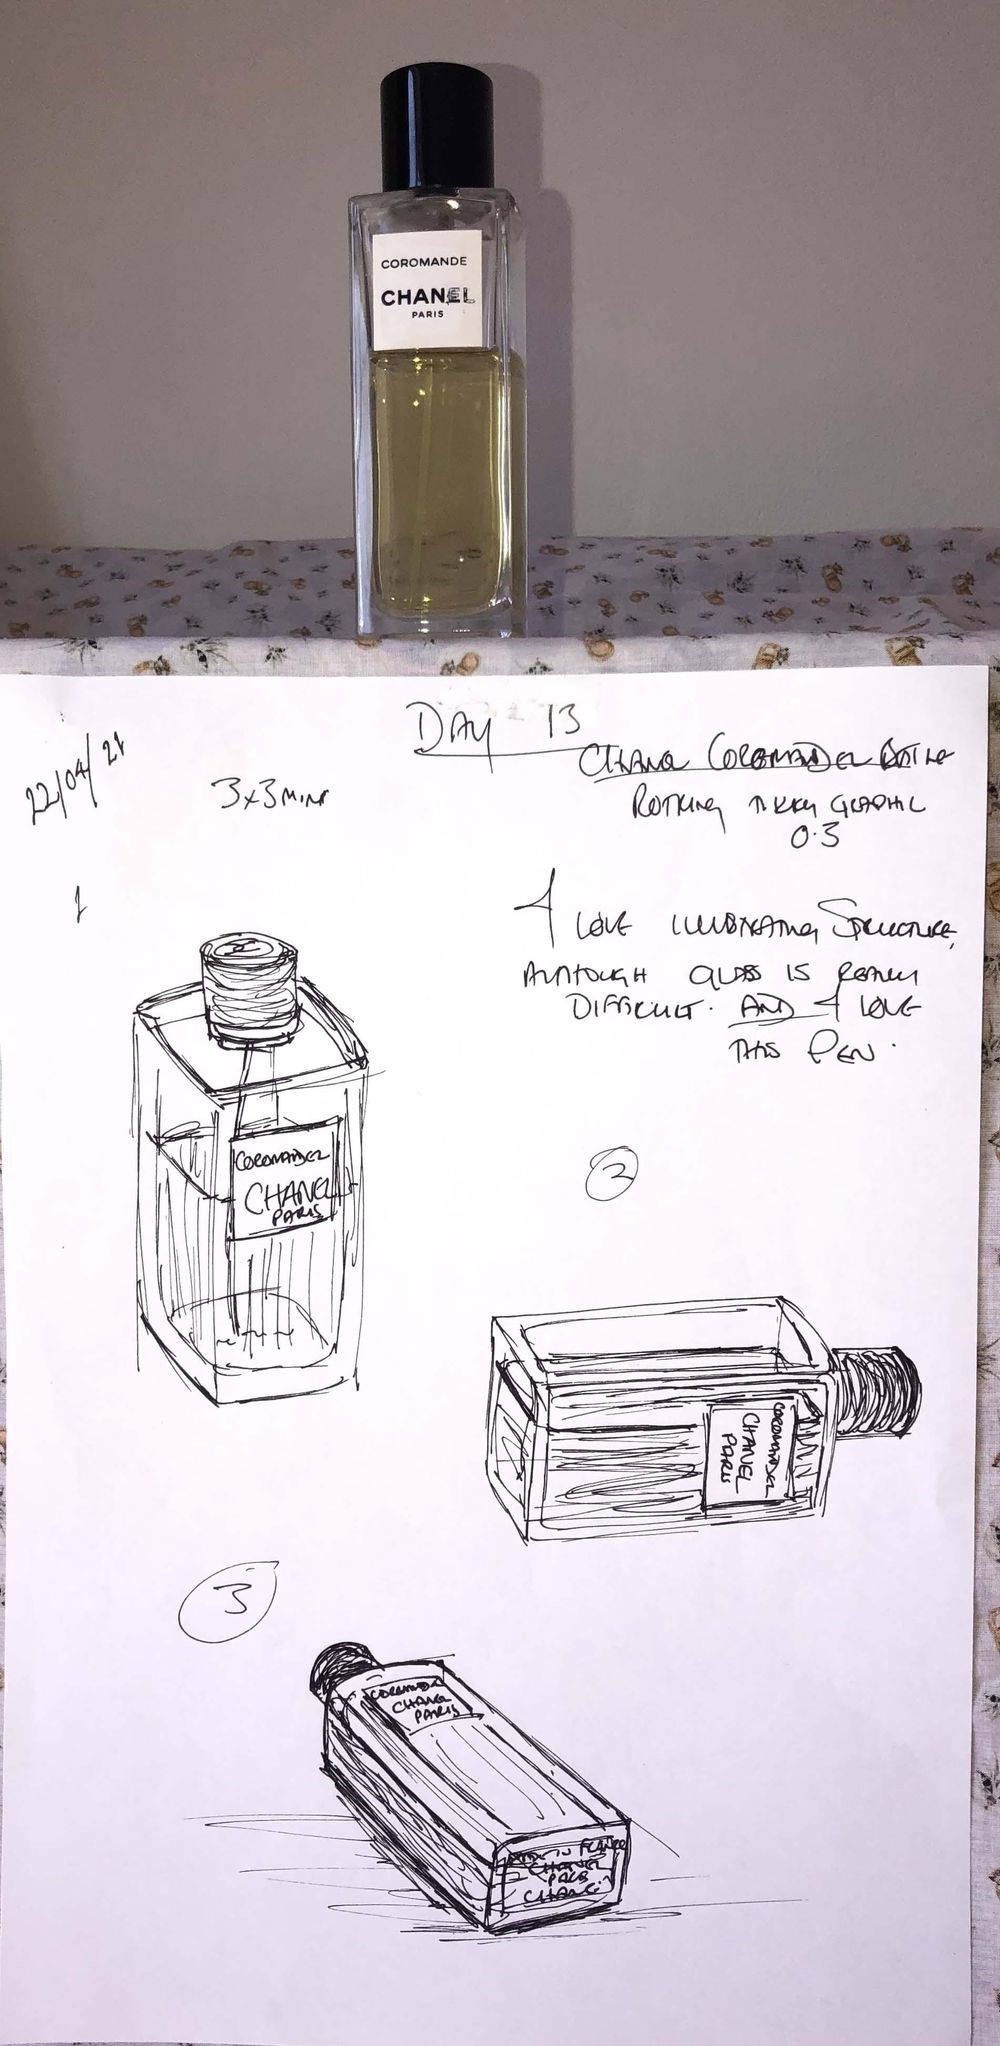 COROMANDE
CHANEL
PARIS
DAY 13
22/04/21
3x3 MINS
CHANEL COROMANDEL BOTTLE
ROTRING TIKKY GRAPHIC
0.3
1
I LOVE ILLUSTRATING STRUCTURE,
ALTHOUGH GLASS IS REALLY
DIFFICULT. AND I LOVE
THIS PEN.
COROMANDEL
CHANEL
PARIS
2
COROMANDEL
CHANEL
PARIS
3
COROMANDEL
CHANEL
PARIS
MADE IN FRANCE
CHANEL
PARIS
CHANEL